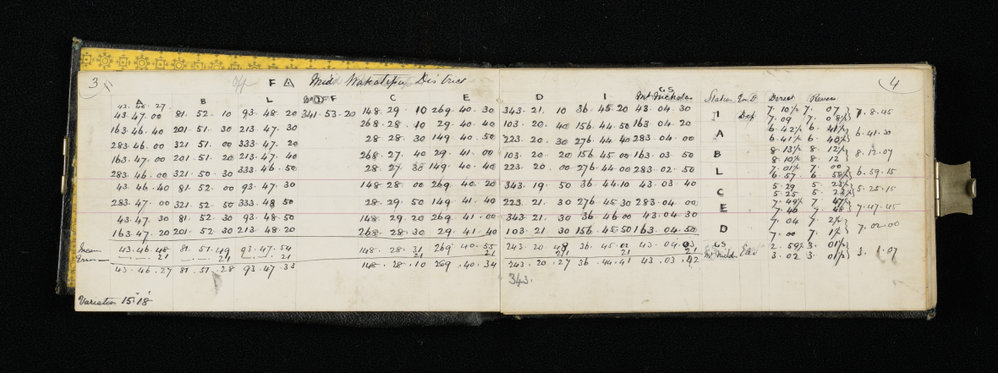 3 F A Mid Wakatipu District 4
A B L F C E D I Mt Nicholas Station Direct
43. 46. 27.
43. 47. 00 81. 52. 10 93. 48. 20 341. 53. 20 148. 29. 10 269. 40. 30 343. 21. 10 36. 45. 20 43. 04. 30 I Dep 7. 10½ 7. 07 7. 8. 45
163. 46. 40 201. 51. 30 213. 47. 30 268. 28. 10 29. 40. 40 103. 20. 40 156. 44. 50 163. 04. 20 A 6. 42½ 6. 41½ 6. 41. 30
283. 46. 00 321. 51. 00 333. 47. 20 28. 28. 30 149. 40. 50 223. 20. 30 276. 44. 40 283. 04. 00
163. 47. 00 201. 51. 20 213. 47. 40 268. 27. 40 29. 41. 00 103. 20. 20 156. 45. 00 163. 03. 50 B 8. 13½ 8. 12½ 8. 12. 07
283. 46. 00 321. 50. 30 333. 46. 50 149. 40. 40 223. 20. 00 276. 44. 00 283. 02. 50 L 7. 01½ 7. 00 6. 59. 15
43. 46. 40 81. 52. 00 93. 47. 30 148. 28. 00 269. 40. 20 343. 19. 50 36. 44. 10 43. 03. 40 C 5. 29 5. 25. 15
283. 47. 00 321. 52. 50 333. 48. 50 28. 29. 50 149. 41. 40 223. 21. 30 276. 45. 30 283. 04. 00 E 7. 49½ 7. 47½ 7. 47. 45
43. 47. 30 81. 52. 30 93. 48. 50 148. 29. 20 269. 41. 00 343. 21. 30 36. 46. 00 43. 04. 30
163. 47. 20 201. 52. 30 213. 48. 20 268. 28. 30 29. 41. 40 103. 21. 30 156. 45. 50 163. 04. 50 D 7. 04 7. 00 7. 02. 00
Mean 43. 46. 48 81. 51. 49 93. 47. 54 148. 28. 31 269. 40. 55 243. 20. 48 36. 45. 02 43. 04. 03 2. 59½ 3. 01½ 3. 1. 07
21 21 21 21 21 21 21
43. 46. 27 81. 51. 28 93. 47. 33 148. 28. 10 269. 40. 34 243. 20. 27 36. 44. 41 43. 03. 42 3. 02 3. 01½
343.
Variation 15° 18'